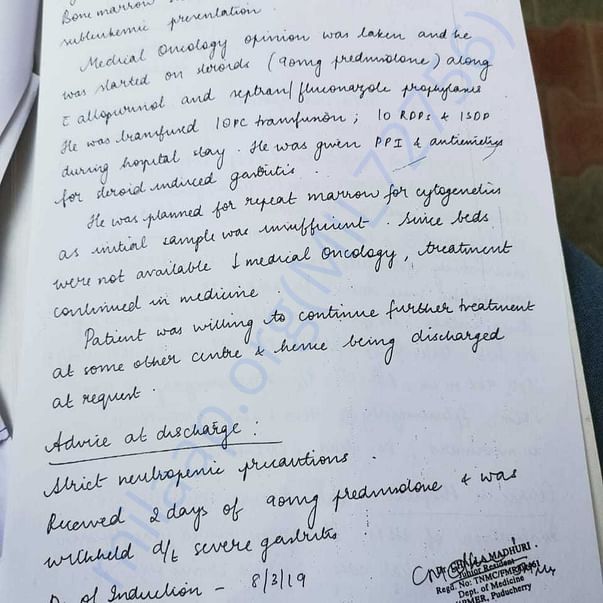 Bone marrow
subleukemic presentation.
Medical Oncology opinion was taken and he
was started on steroids (90mg prednisolone) along
c̄ allopurinol and septran/fluconazole prophylaxis
He was transfused 10PC transfusion; 10 RDPs & 1SDP
during hospital stay. He was given PPI & antiemetics
for steroid induced gastritis.
He was planned for repeat marrow for cytogenetics
as initial sample was insufficient. Since beds
were not available ↓ medical oncology, treatment
continued in medicine.
Patient was willing to continue further treatment
at some other centre & hence being discharged
at request.
Advice at discharge:
Strict neutropenic precautions.
Received 2 days of 90mg prednisolone & was
withheld d/t severe gastritis
of Induction - 8/3/19
MADHURI
Junior Resident
Regd. No: TNMC/FMR
Dept. of Medicine
JIPMER, Puducherry
milaap.org(MIL72756)